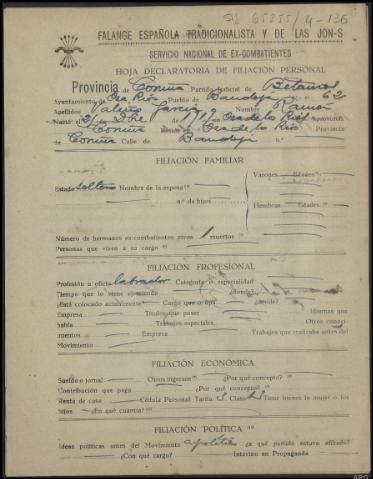 65255/4-136
FALANGE ESPAÑOLA TRADICIONALISTA Y DE LAS JON-S
SERVICIO NACIONAL DE EX-COMBATIENTES
HOJA DECLARATORIA DE FILIACIÓN PERSONAL
Provincia de Coruña Partido Judicial de Betanzos
Ayuntamiento de Oza Ríos Pueblo de Bandoja n.º 62
Apellidos García Nombre Ramón
Nació el 21 de 1919 en Oza de los Ríos
Coruña Oza de los Ríos Provincia
de Coruña Calle de Bandoja n.º
FILIACIÓN FAMILIAR
Varones Edades
Estado soltero Nombre de la esposa
n.º de hijos
Hembras Edades
Número de hermanos ex-combatientes vivos 1 muertos
Personas que viven a su cargo
FILIACIÓN PROFESIONAL
Profesión u oficio labrador Categoría o especialidad
Tiempo que lo viene ejerciendo
¿Está colocado actualmente? Cargo que ocupa Idiomas que
Empresa Títulos que posee
habla Trabajos especiales Otros conoci-
mientos Empresa Trabajos que realizaba antes del
Movimiento
FILIACIÓN ECONÓMICA
Sueldo o jornal Otros ingresos ¿Por qué concepto?
Contribución que paga ¿Por qué concepto?
Renta de casa Cédula Personal Tarifa Clase Tiene bienes la mujer o los
hijos ¿En qué cuantía?
FILIACIÓN POLÍTICA
Ideas políticas antes del Movimiento apolítico ¿a qué partido estuvo afiliado?
¿Con qué cargo? Intervino en Propaganda